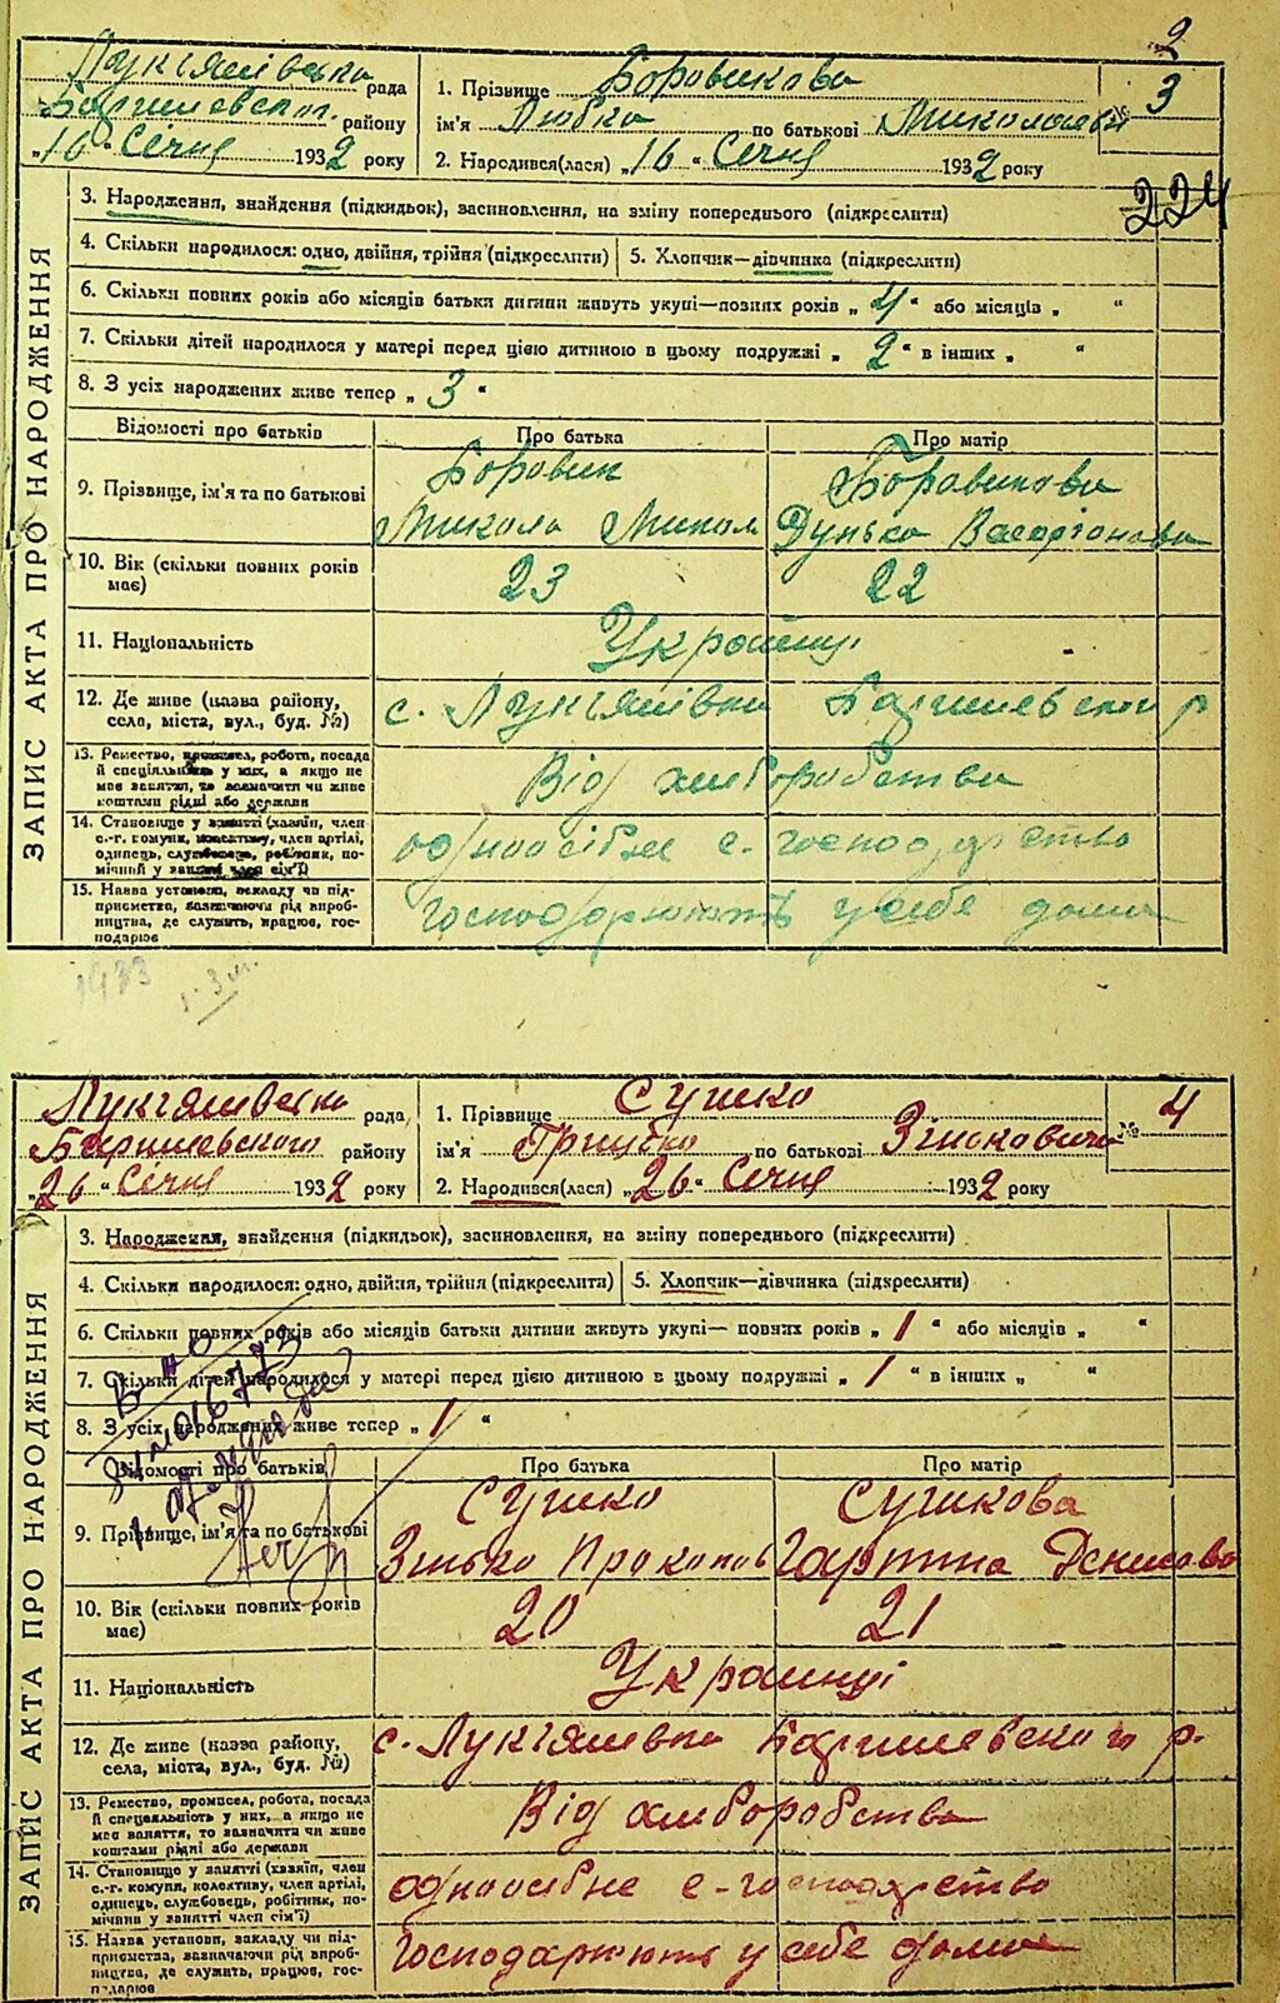 2
Лукʼянівська рада
Баришевськ. району
„16“ Січня 1932 року
1. Прізвище Боровикова
ім'я Любка по батькові Миколаєвн
2. Народився(лася) „16“ Січня 1932 року
№ 3
224
ЗАПИС АКТА ПРО НАРОДЖЕННЯ
3. Народження, знайдення (підкидьок), засиновлення, на зміну попереднього (підкреслити)
4. Скільки народилося: одно, двійня, трійня (підкреслити)
5. Хлопчик—дівчинка (підкреслити)
6. Скільки повних років або місяців батьки дитини живуть укупі—повних років „4“ або місяців „ “
7. Скільки дітей народилося у матері перед цією дитиною в цьому подружжі „2“ в інших „ “
8. З усіх народжених живе тепер „3“
Відомості про батьків
Про батька
Про матір
9. Прізвище, ім'я та по батькові
Боровик
Микола Микол
Боровикова
Дунька
10. Вік (скільки повних років
має)
23
22
11. Національність
Українці
12. Де живе (назва району,
села, міста, вул., буд. №)
с. Лукʼянівка Баришевского р
13. Ремество, промисел, робота, посада
й спеціяльність у них, а якщо не
має заняття, то зазначити чи живе
коштами рідні або держави
Від хліборобства
14. Становище у занятті (хазяїн, член
с.-г. комуни, колективу, член артілі,
одинець, службовець, робітник, по-
мічний у занятті член сім'ї)
одноосібне с-господарство
15. Назва установи, закладу чи під-
приємства, зазначаючи рід вироб-
ництва, де служить, працює, гос-
подарює
Господарюють у себе дома
1933
Лукʼянівська рада
Баришевського району
„26“ Січня 1932 року
1. Прізвище Сушко
ім'я Грицько по батькові Зіньковича
2. Народився(лася) „26“ Січня 1932 року
№ 4
ЗАПИС АКТА ПРО НАРОДЖЕННЯ
3. Народження, знайдення (підкидьок), засиновлення, на зміну попереднього (підкреслити)
4. Скільки народилося: одно, двійня, трійня (підкреслити)
5. Хлопчик—дівчинка (підкреслити)
6. Скільки повних років або місяців батьки дитини живуть укупі— повних років „1“ або місяців „ “
7. Скільки дітей народилося у матері перед цією дитиною в цьому подружжі „1“ в інших „ “
8. З усіх народжених живе тепер „1“
Відомості про батьків
Про батька
Про матір
9. Прізвище, ім'я та по батькові
Сушко
Зінько Прокопов
Сушкова
Горпина Денисова
10. Вік (скільки повних років
має)
20
21
11. Національність
Українці
12. Де живе (назва району,
села, міста, вул., буд. №)
с. Лукʼянівка Баришевского р.
13. Ремество, промисел, робота, посада
й спецяльність у них, а якщо не
має заняття, то зазначити чи живе
коштами рідні або держави
Від хліборобства
14. Становище у занятті (хазяїн, член
с.-г. комуни, колективу, член артілі,
одинець, службовець, робітник, по-
мічник у занятті член сім'ї)
одноосібне с-господарство
15. Назва установи, закладу чи під-
приємства, зазначаючи рід вироб-
ництва, де служить, працює, гос-
подарює
Господарюють у себе дома